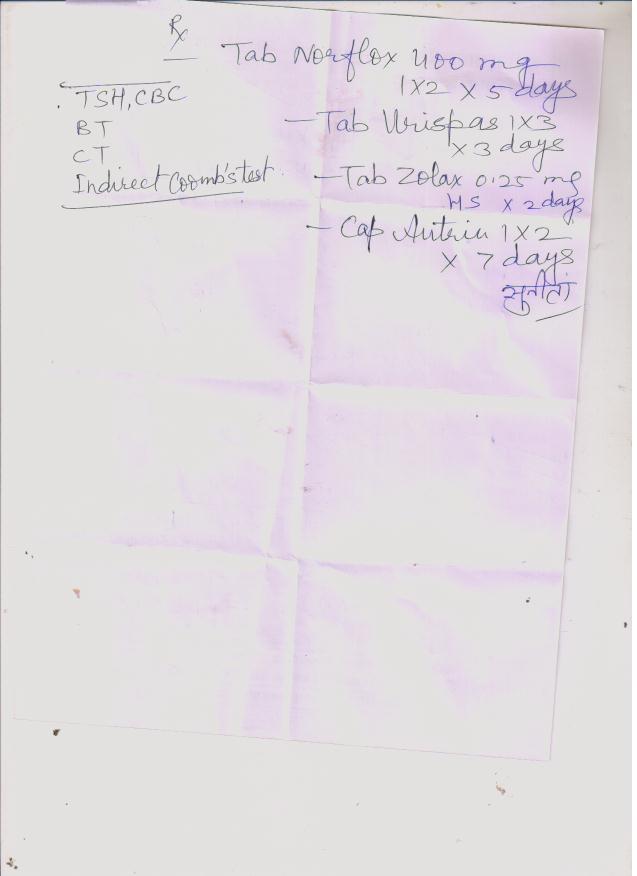 Rx
Tab Norflox 400 mg
1x2 x 5 days
TSH, CBC
BT
CT
Indirect Coomb's test.
— Tab Urispas 1x3
x 3 days
— Tab Zolax 0.25 mg
HS x 2 days
— Cap Autrin 1x2
x 7 days
सुनीता